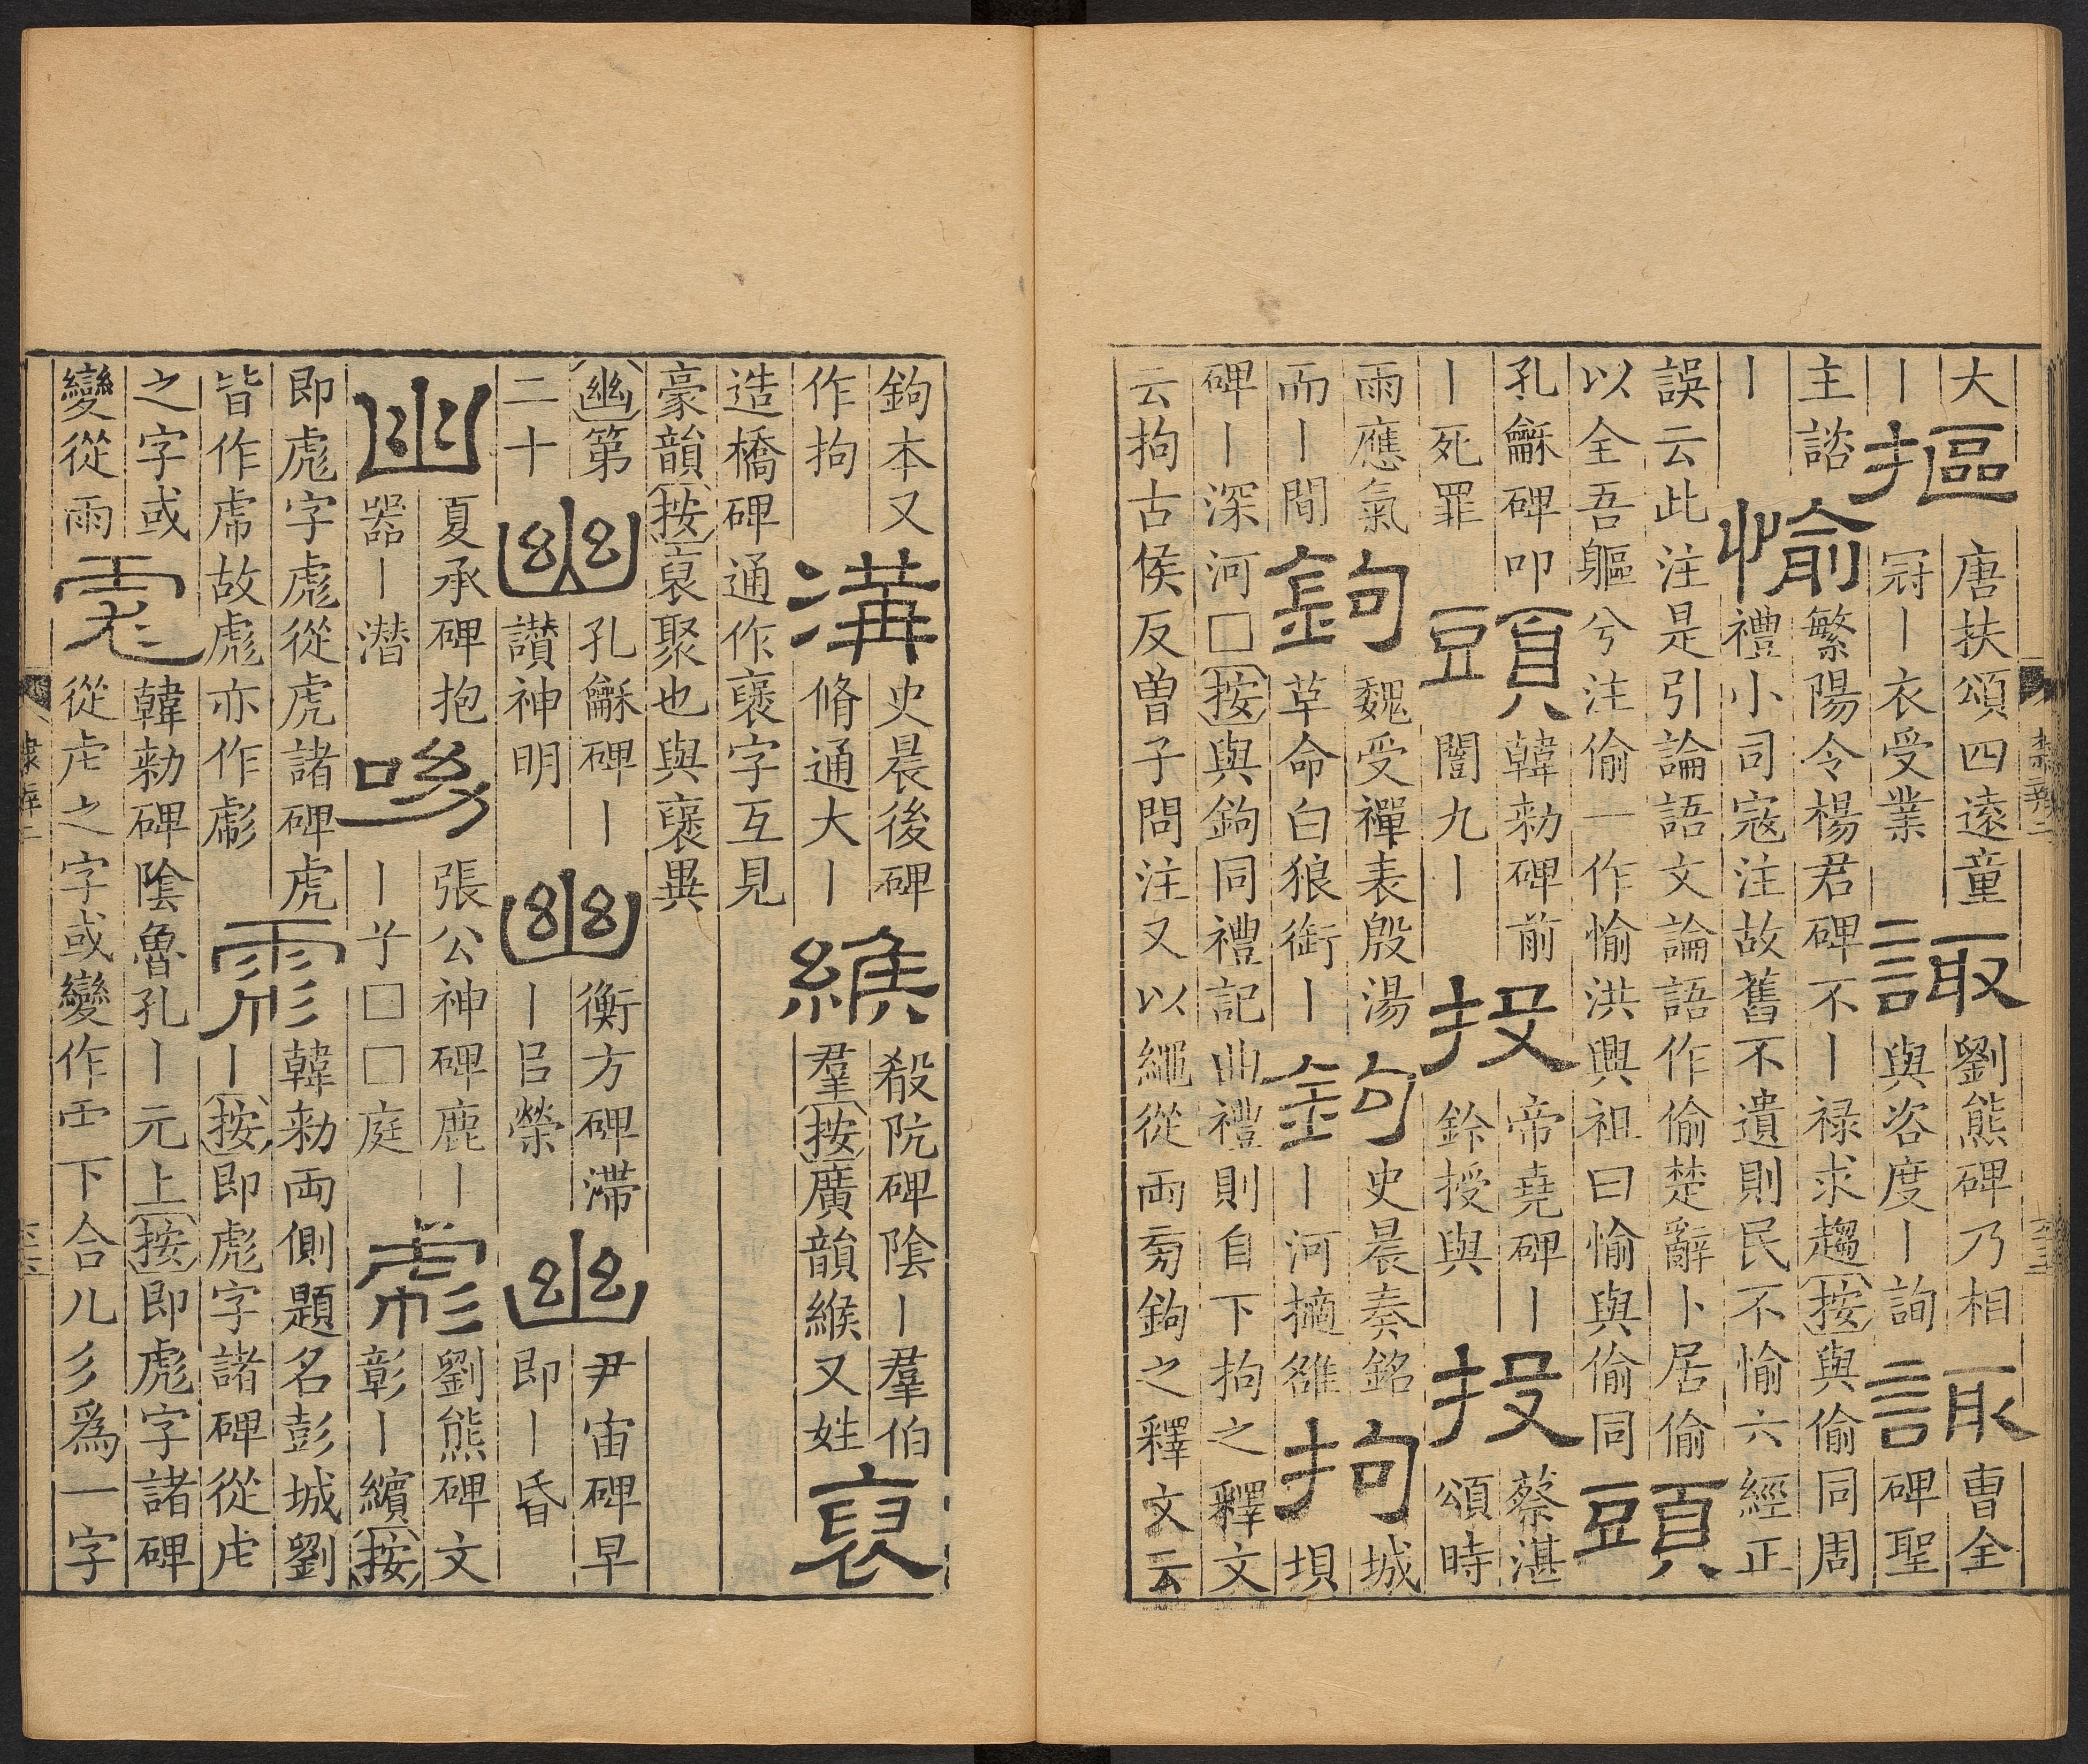 大
丨
摳
唐扶頌四遠童
冠丨衣受業
諏
劉熊碑乃相
與咨度丨詢
諏
曹全
碑聖
主諮
丨
愉
繁陽令楊君碑不丨禄求趨按與偷同周
禮小司寇注故舊不遺則民不愉六經正
誤云此注是引論語文論語作偷楚辭卜居偷
以全吾軀兮注偷一作愉洪興祖曰愉與偷同
頭
孔龢碑叩
丨死罪
頭
韓勑碑前
闇九丨
投
帝堯碑丨
鈴授與
投
蔡湛
頌時
雨應氣
而丨間
鉤
魏受禪表殷湯
革命白狼銜丨
鉤
史晨奏銘
丨河擿雒
拘
城
垻
碑丨深河□按與鉤同禮記曲禮則自下拘之釋文
云拘古侯反曽子問注又以繩從兩旁鉤之釋文云
鉤本又
作拘
溝
史晨後碑
脩通大丨
緱
殽阬碑陰丨羣伯
羣按廣韻緱又姓
裒
造橋碑通作褒字互見
豪韻按裒聚也與褒異
幽第
二十
幽
孔龢碑丨
讚神明
幽
衡方碑滯
丨㠯榮
幽
尹宙碑早
即丨昏
幽
夏承碑抱
器丨潜
呦
張公神碑鹿丨
丨乎□□庭
彪
劉熊碑文
彰丨繽按
即彪字彪從虎諸碑虎
皆作乕故彪亦作彪
彪
韓勑兩側題名彭城劉
丨按即彪字諸碑從虍
之字或
變從雨
彪
韓勑碑陰魯孔丨元上按即彪字諸碑
從虍之字或變作⻗下合儿彡爲一字
隸辨二